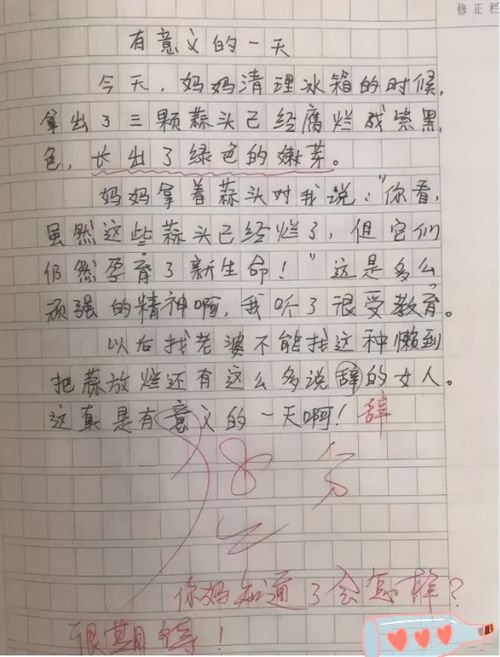 修正栏
有意义的一天
今天，妈妈清理冰箱的时候，
拿出了三颗蒜头已经腐烂成紫黑
色，长出了绿色的嫩芽。
妈妈拿着蒜头对我说："你看，
虽然这些蒜头已经烂了，但它们
仍然孕育了新生命！"这是多么
顽强的精神啊，我听了很受教育。
以后找老婆不能找这种懒到
把蒜放烂还有这么多说辞的女人。
这真是有意义的一天啊！辞
你妈知道了会怎样？
很期待！